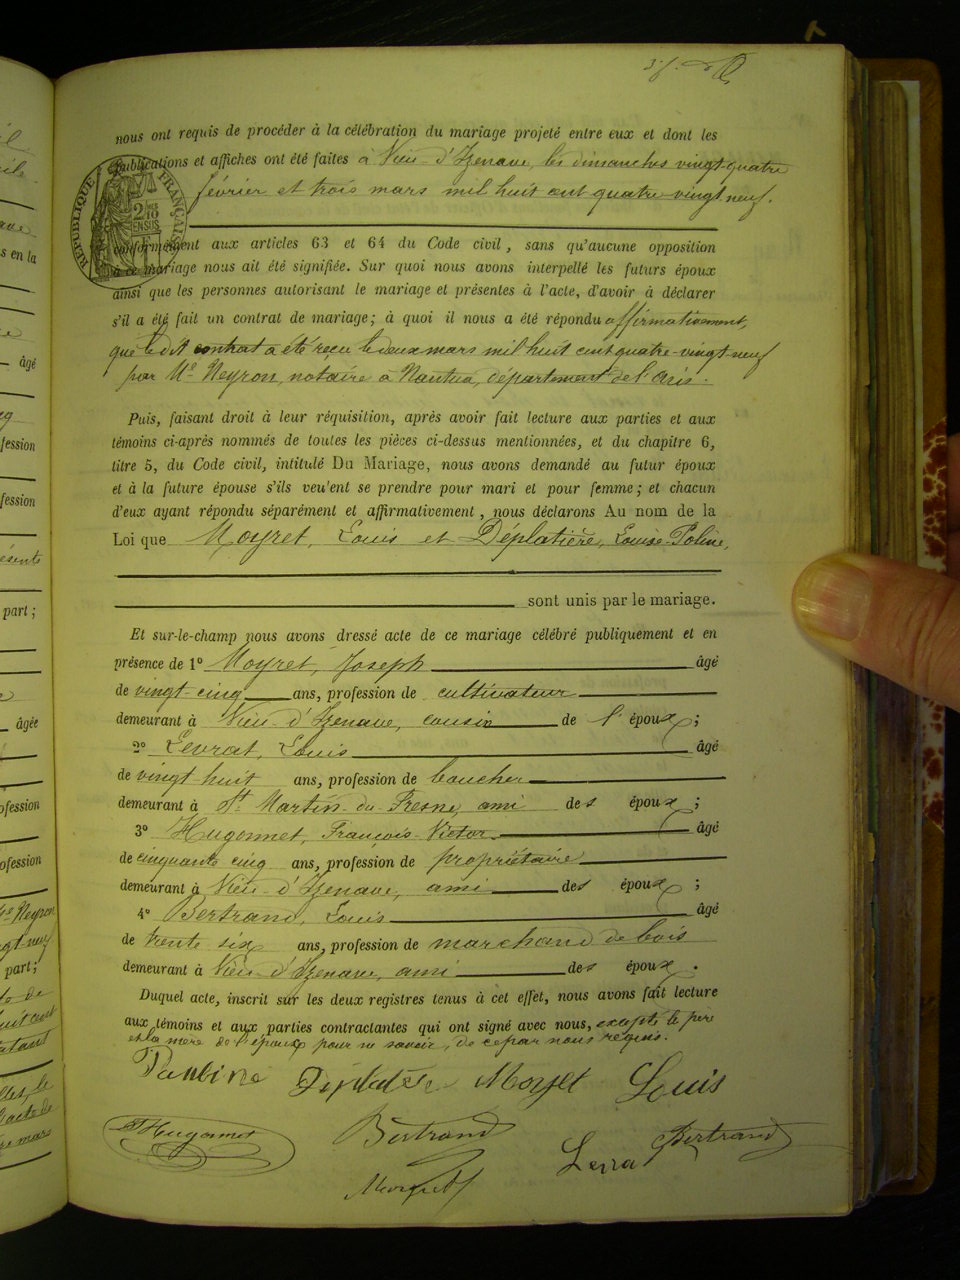 nous ont requis de procéder à la célébration du mariage projeté entre eux et dont les
publications et affiches ont été faites à Vieu-d'Izenave, les dimanches vingt-quatre
février et trois mars mil huit cent quatre-vingt neuf.
RÉPUBLIQUE FRANÇAISE
2/10 EN SUS
conformément aux articles 63 et 64 du Code civil, sans qu'aucune opposition
à ce mariage nous ait été signifiée. Sur quoi nous avons interpellé les futurs époux
ainsi que les personnes autorisant le mariage et présentes à l'acte, d'avoir à déclarer
s'il a été fait un contrat de mariage; à quoi il nous a été répondu affirmativement,
que le dit contrat a été reçu le deux mars mil huit cent quatre-vingt neuf
par Me Neyron, notaire à Nantua, département de l'Ain.
Puis, faisant droit à leur réquisition, après avoir fait lecture aux parties et aux
témoins ci-après nommés de toutes les pièces ci-dessus mentionnées, et du chapitre 6,
titre 5, du Code civil, intitulé Du Mariage, nous avons demandé au futur époux
et à la future épouse s'ils veu'ent se prendre pour mari et pour femme; et chacun
d'eux ayant répondu séparément et affirmativement, nous déclarons Au nom de la
Loi que Moyret, Louis et Déplatière, Louise-Poline,
sont unis par le mariage.
Et sur-le-champ nous avons dressé acte de ce mariage célébré publiquement et en
présence de 1° Moyret, Joseph âgé
de vingt-cinq ans, profession de cultivateur
demeurant à Vieu-d'Izenave, cousin de l'époux;
2° Levrat, Louis âgé
de vingt-huit ans, profession de boucher
demeurant à St Martin-du-Fresne, ami des époux;
3° Hugonnet, François-Victor âgé
de cinquante cinq ans, profession de propriétaire
demeurant à Vieu-d'Izenave, ami des époux;
4° Bertrand, Louis âgé
de trente six ans, profession de marchand de bois
demeurant à Vieu-d'Izenave, ami des époux.
Duquel acte, inscrit sur les deux registres tenus à cet effet, nous avons fait lecture
aux témoins et aux parties contractantes qui ont signé avec nous, excepté le père
et la mère de l'époux pour ne savoir, de ce par nous requis.
Moyret Louis
Hugonnet Bertrand Bertrand